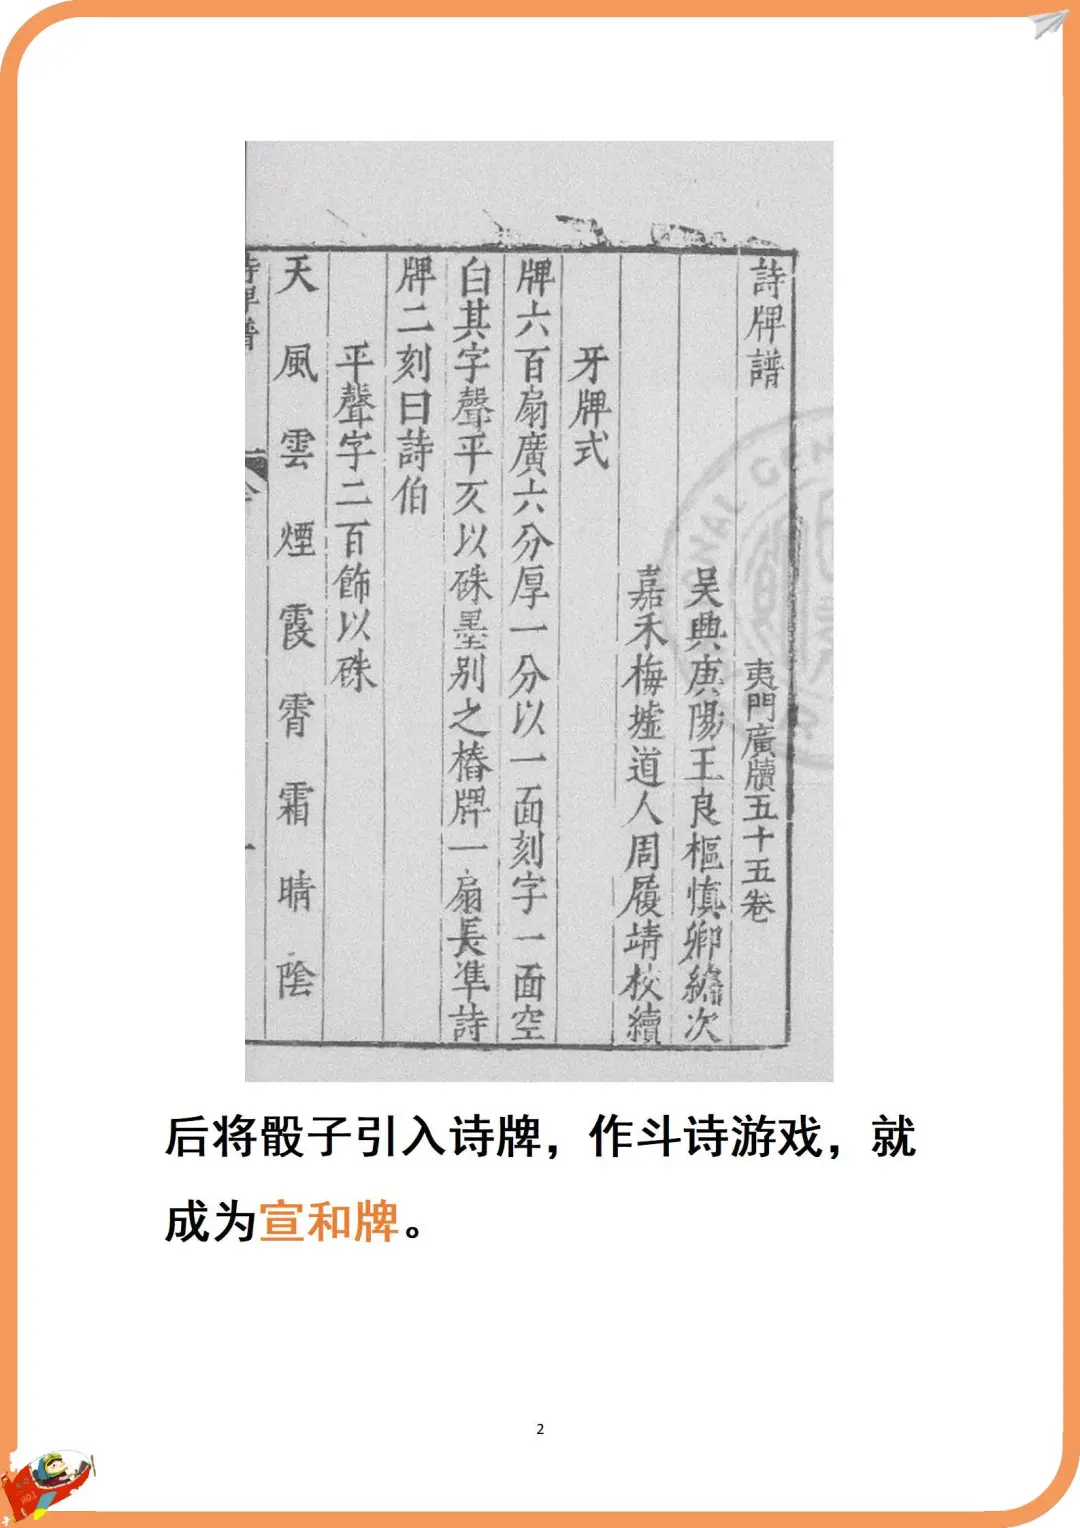 詩牌譜 夷門廣牘五十五卷
吳興庚陽王良樞慎卿編次
嘉禾梅墟道人周履靖校續
牙牌式
牌六百扇廣六分厚一分以一面刻字一面空
白其字聲平仄以硃墨別之樁牌一扇長準詩
牌二刻曰詩伯
平聲字二百飾以硃
天風雲煙霞霄霜晴陰
詩牌譜
后将骰子引入诗牌，作斗诗游戏，就
成为宣和牌。
2